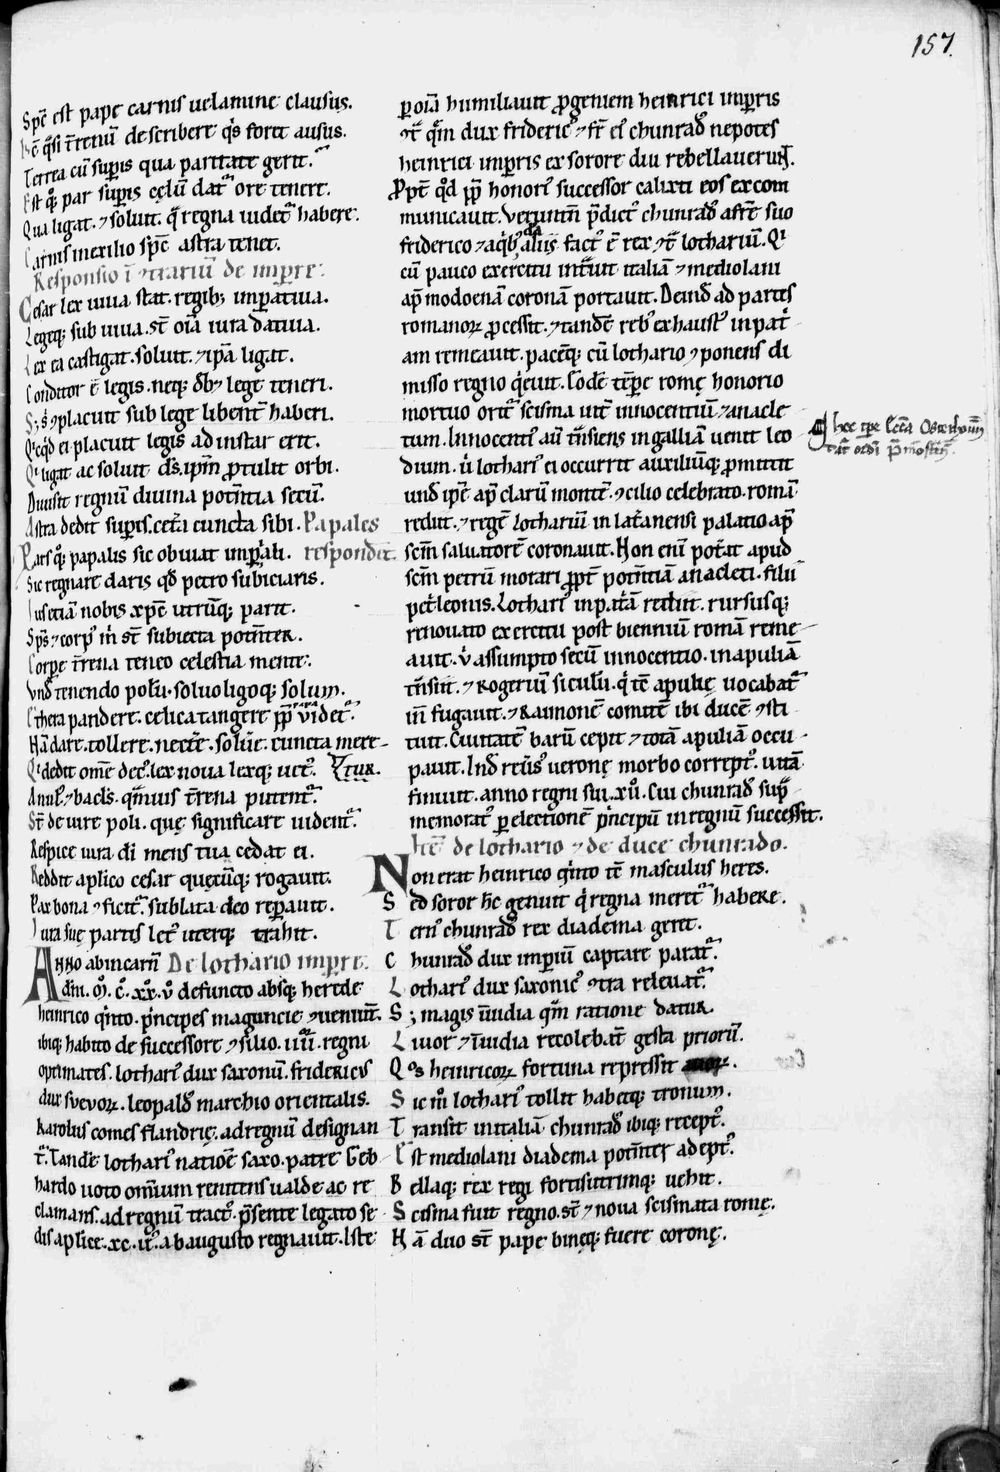 157.
Spc̄ est pape carnis uelamine clausus.
describere q̓s foret ausus.
Terrea cū suꝑis qua paritate gerit.
Est q̓ꝫ par suꝑis cęlū dat᷑ ore tenere.
Qua ligat. ⁊ soluit. q̄ regna uidet᷑ habere.
Carnis inexilio spc̄ astra tenet.
Responsio ī ꝯtrariū de imꝑre.
Cesar lex uiua stat. regib; imꝑatiua.
Legeq; sub uiua. st̄ oīa iura datiua.
Lex ea castigat. soluit. ⁊ ip̄a ligat.
Conditor ē legis. neq; lege teneri.
placuit sub lege libent̄ haberi.
Q̓cq̓d ei placuit legis ad instar erit.
Q̓ ligat ac soluit d̄s. ip̄m ꝓtulit orbi.
Diuisit regnū diuina potn̄tia secū.
Astra dedit suꝑis. cet̄a cuncta sibi. Papales
Pars q̓ꝫ papalis sic obuiat imꝑali. respondit.
Sic regnare daris qd̄ petro subiciaris.
Ius etiā nobis xp̄c utrūq; parit.
Sp̄s ⁊ corp᷒ m̓ st̄ subiecta potn̄ter.
Corꝑe t̄rena teneo celestia mente.
Vn̄ tenendo polū. soluo ligoq; solum.
Ethera pandere. celica tangere pp̄ uidet᷑.
Nā dare. tollere. nectē. soluē. cuncta mere-
Q̓ dedit om̄e dec᷒. lex noua lexq; uet᷒. ꝛetur.
Anul᷒ ⁊ bacl᷒s. q̄muis t̄rena putent᷑.
St̄ de iure poli. quę significare uident᷑.
Respice iura dī mens tua cedat ei.
Reddit aplico cesar quęcūq; rogauit.
Pax bona ꝯficit᷑. sublata deo reꝑauit.
Iura suę partis let᷒ uterq; trahit.
Anno ab incarn̄ De lothario imꝑre.
dn̄i. M̄. C̄. xx̄. v̄ defuncto absq; herede
heinrico q̓nto. p̓ncipes maguncie ꝯueniūt.
ibiq; habito de successore ꝯsilio. iiii᷑. regni
optimates. lothari᷒ dux saxonū. fridericus
dux sueuoꝝ. leopald᷒ marchio orientalis.
Karolus comes flandrię. ad regnū designan
t᷑. Tandē lothari᷒ natiōe saxo. patre Geb
hardo uoto omīum renitens ualde ac re
clamans. ad regnū tract᷒. p̄sente legato se
dis aplice. xc. ii᷒. ab augusto regnauit. Iste
ꝑ oīa humiliauit ꝓgeniem heinrici imꝑris
q̄m dux frideric᷒ ⁊ fr̄ ei᷒ chunrad᷒ nepotes
heinrici imꝑris ex sorore diu rebellauerunt.
Ꝓpt̄ qd̄ pp̄ honori᷒ successor calixti eos excom
municauit. Verumtn̄ p̄dict᷒ chunrad᷒ a fr̄e suo
friderico ⁊ a q̓b᷒dā aliis fact᷒ ē rex ꝯt̄ lothariū. Q̓
cū pauco exercitu int̓uit italiā ⁊ mediolani
ap̄ modoenā coronā portauit. Deind̄ ad partes
romanoꝝ ꝓcessit. ⁊ tandē reb᷒ exhaust᷒ in pat̓
am remeauit. pacēq; cū lothario ꝯponens di
misso regno q̓euit. Eodē tēꝑe romę honorio
mortuo orit᷑ scisma int̄ innocentiū ⁊ anacle
tum. Innocenti᷒ aū t̄nsiens in galliā uenit leo
dium. ū lothari᷒ ei occurrit auxiliūq; ꝓmittit
und̄ ip̄e ap̄ clarū montē. ꝯcilio celebrato. romā
rediit. ⁊ regē lothariū in lat̄anensi palatio ap̄
sc̄m saluatorē coronauit. Non enī pot̄at apud
sc̄m petrū morari ꝓpt̄ potn̄tiā anacleti. filii
pet̓leonis. Lothari᷒ in pat̓ā rediit. rursusq;
renouato exercitu post bienniū romā reme
auit. ū assumpto secū innocentio. in apuliā
t̄nsiit. ⁊ Rogeriū siculū. q̓ ꝯtē apulię uocabat᷑
in̄ fugauit. ⁊ Rainonē comitē ibi ducē ꝯsti
tuit. Ciuitatē barū cepit ⁊ totā apuliā occu
pauit. Ind̄ reūs᷒ ueronę morbo corrept᷒. uitā
finiuit. anno regni sui. xii᷒. Cui chunrad᷒ sup̄
memorat᷒ ꝑ electionē p̓ncipū in regnū successit.
It̄ de lothario ⁊ de duce chunrado.
Non erat heinrico q̓nto tc̄ masculus heres.
Sed soror hc̄ genuit q̓ regna meret᷑ habere.
Tern᷒ chunrad᷒ rex diadema gerit.
Chunrad᷒ dux imꝑiū captare parat᷑.
Lothari᷒ dux saxonie ꝯtra releuat᷑.
S; magis īuidia q̄m ratione datur.
Liuor ⁊ īuidia recolebāt gesta priorū.
Qos heinricoꝝ fortuna repressit.
Sic m̓ lothari᷒ tollit habetq; tronum.
Transit in italiā chunrad᷒ ibiq; recept᷒.
Est mediolani diadema potn̄ter adept᷒.
Bellaq; rex regi fortis utrimq; uehit.
Scisma fuit regno. st̄ ⁊ noua scismata romę.
Nā duo st̄ pape bineq; fuere coronę.